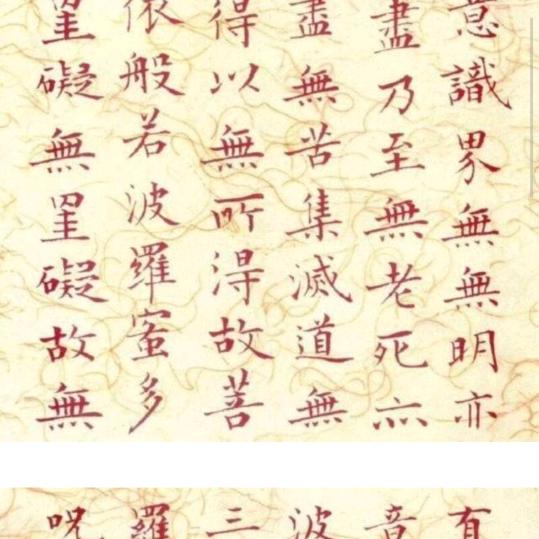 意識界無無明亦
盡乃至無老死亦
盡無苦集滅道無
得以無所得故菩
依般若波羅蜜多
罣礙無罣礙故無
有
音
波
三
羅
呪